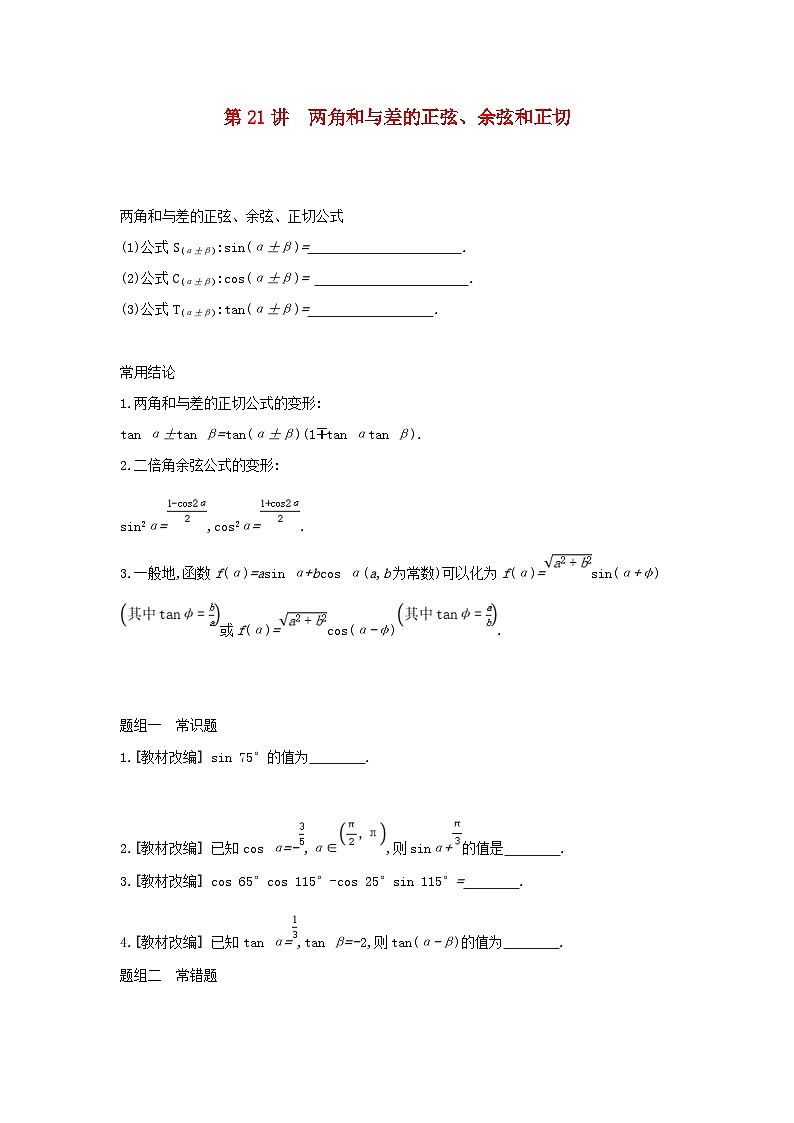 第 21 讲　两角和与差的正弦、余弦和正切
两角和与差的正弦、余弦、正切公式
(1)公式 S(α±β):sin(α±β)=______________________.
(2)公式 C(α±β):cos(α±β)= ______________________.
(3)公式 T(α±β):tan(α±β)=__________________.
常用结论
1.两角和与差的正切公式的变形:
tan α±tan β=tan(α±β)(1∓tan αtan β).
2.二倍角余弦公式的变形:
sin²α=\frac{1-cos2α}{2},cos²α=\frac{1+cos2α}{2}.
3.一般地,函数 f(α)=asin α+bcos α(a,b为常数)可以化为 f(α)=\sqrt{a²+b²}sin(α+φ)
(其中 tan φ=\frac{b}{a})或 f(α)=\sqrt{a²+b²}cos(α-φ)(其中 tan φ=\frac{a}{b}).
题组一　常识题
1.[教材改编] sin 75°的值为________.
2.[教材改编] 已知 cos α=-\frac{3}{5},α∈(\frac{π}{2},π),则 sin α+\frac{π}{3}的值是________.
3.[教材改编] cos 65°cos 115°-cos 25°sin 115°=________.
4.[教材改编] 已知 tan α=\frac{1}{3},tan β=-2,则 tan(α-β)的值为________.
题组二　常错题